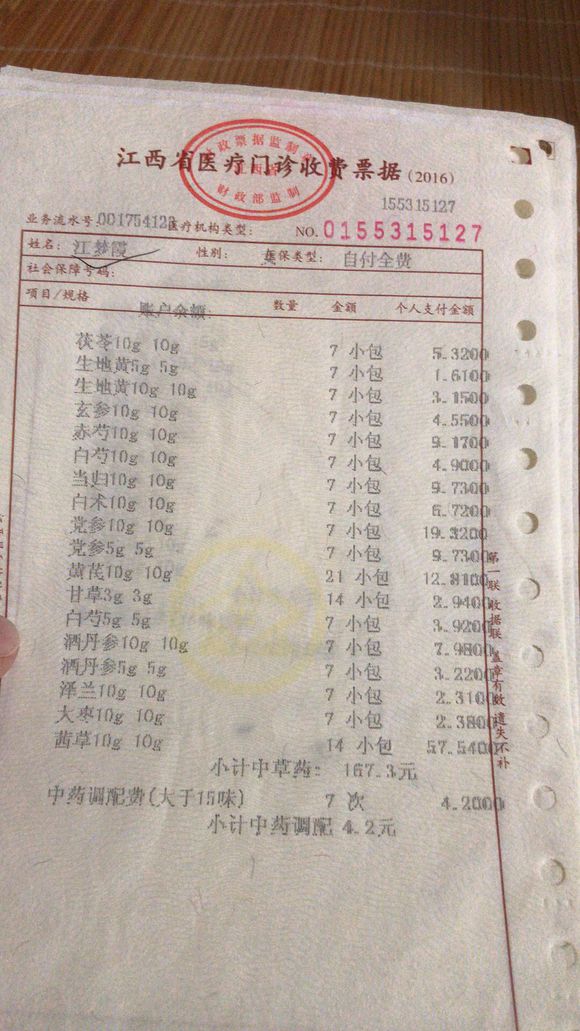 江西省医疗门诊收费票据(2016)
155315127
业务流水号:001754123 医疗机构类型: NO.0155315127
姓名: 江梦霞 性别: 医保类型: 自付全费
社会保障号码:
项目/规格 数量 金额 个人支付金额
账户余额:
茯苓10g 10g 7 小包 5.3200
生地黄5g 5g 7 小包 1.6100
生地黄10g 10g 7 小包 3.1500
玄参10g 10g 7 小包 4.5500
赤芍10g 10g 7 小包 9.1700
白芍10g 10g 7 小包 4.9000
当归10g 10g 7 小包 9.7300
白术10g 10g 7 小包 6.7200
党参10g 10g 7 小包 19.3200
党参5g 5g 7 小包 9.7300
黄芪10g 10g 21 小包 12.8100
甘草3g 3g 14 小包 2.9400
白芍5g 5g 7 小包 3.9200
酒丹参10g 10g 7 小包 7.9800
酒丹参5g 5g 7 小包 3.2200
泽兰10g 10g 7 小包 2.3100
大枣10g 10g 7 小包 2.3800
茜草10g 10g 14 小包 57.5400
小计中草药: 167.3元
中药调配费(大于15味) 7 次 4.2000
小计中药调配 4.2元
第一联 收据联 盖章有效 遗失不补
财政部监制